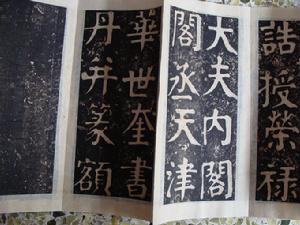 誥授榮祿
大夫内閣
閣丞天津
華世奎書
丹并篆額